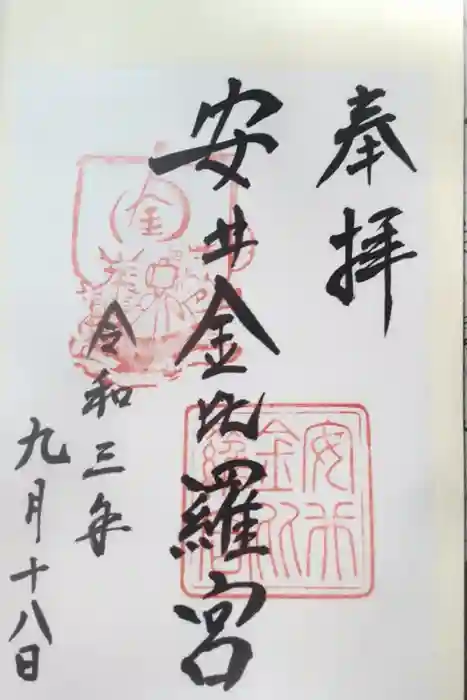 奉拝
安井金比羅宮
令和三年
九月十八日
金